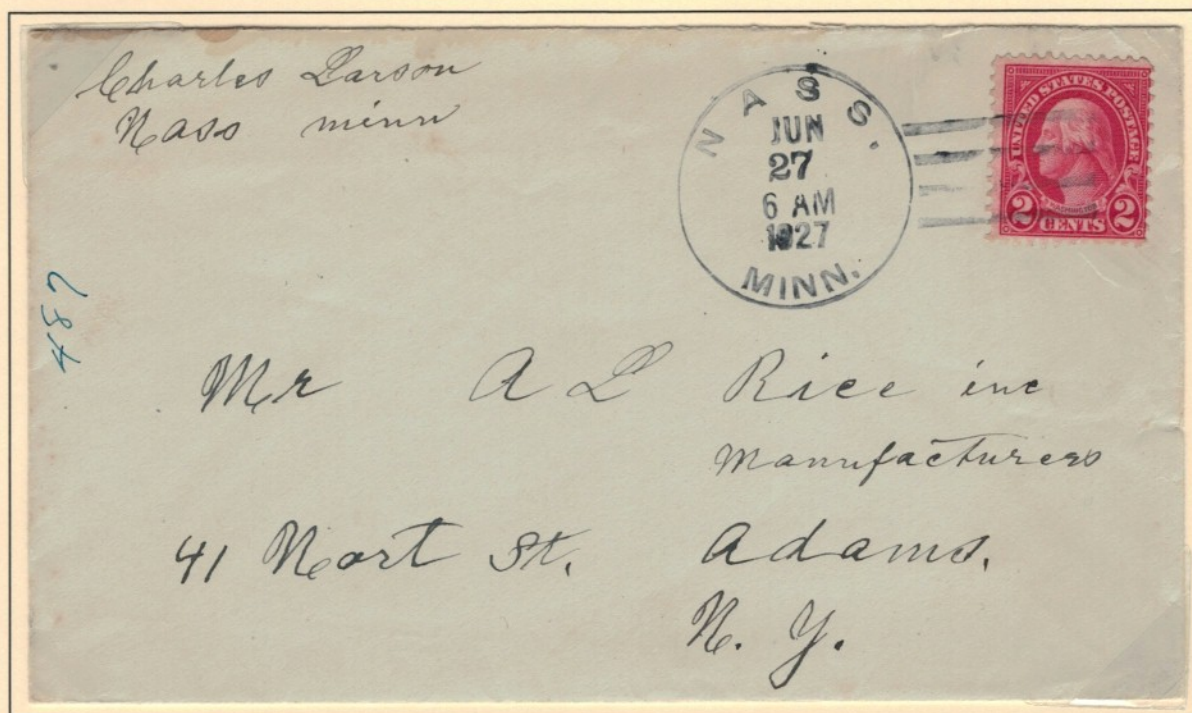 Charles Larson
Nass minn
NASS.
JUN
27
6 AM
1927
MINN.
UNITED STATES POSTAGE
WASHINGTON
2 CENTS 2
487
Mr A L Rice inc
manufacturers
41 Nort St. Adams.
N. Y.